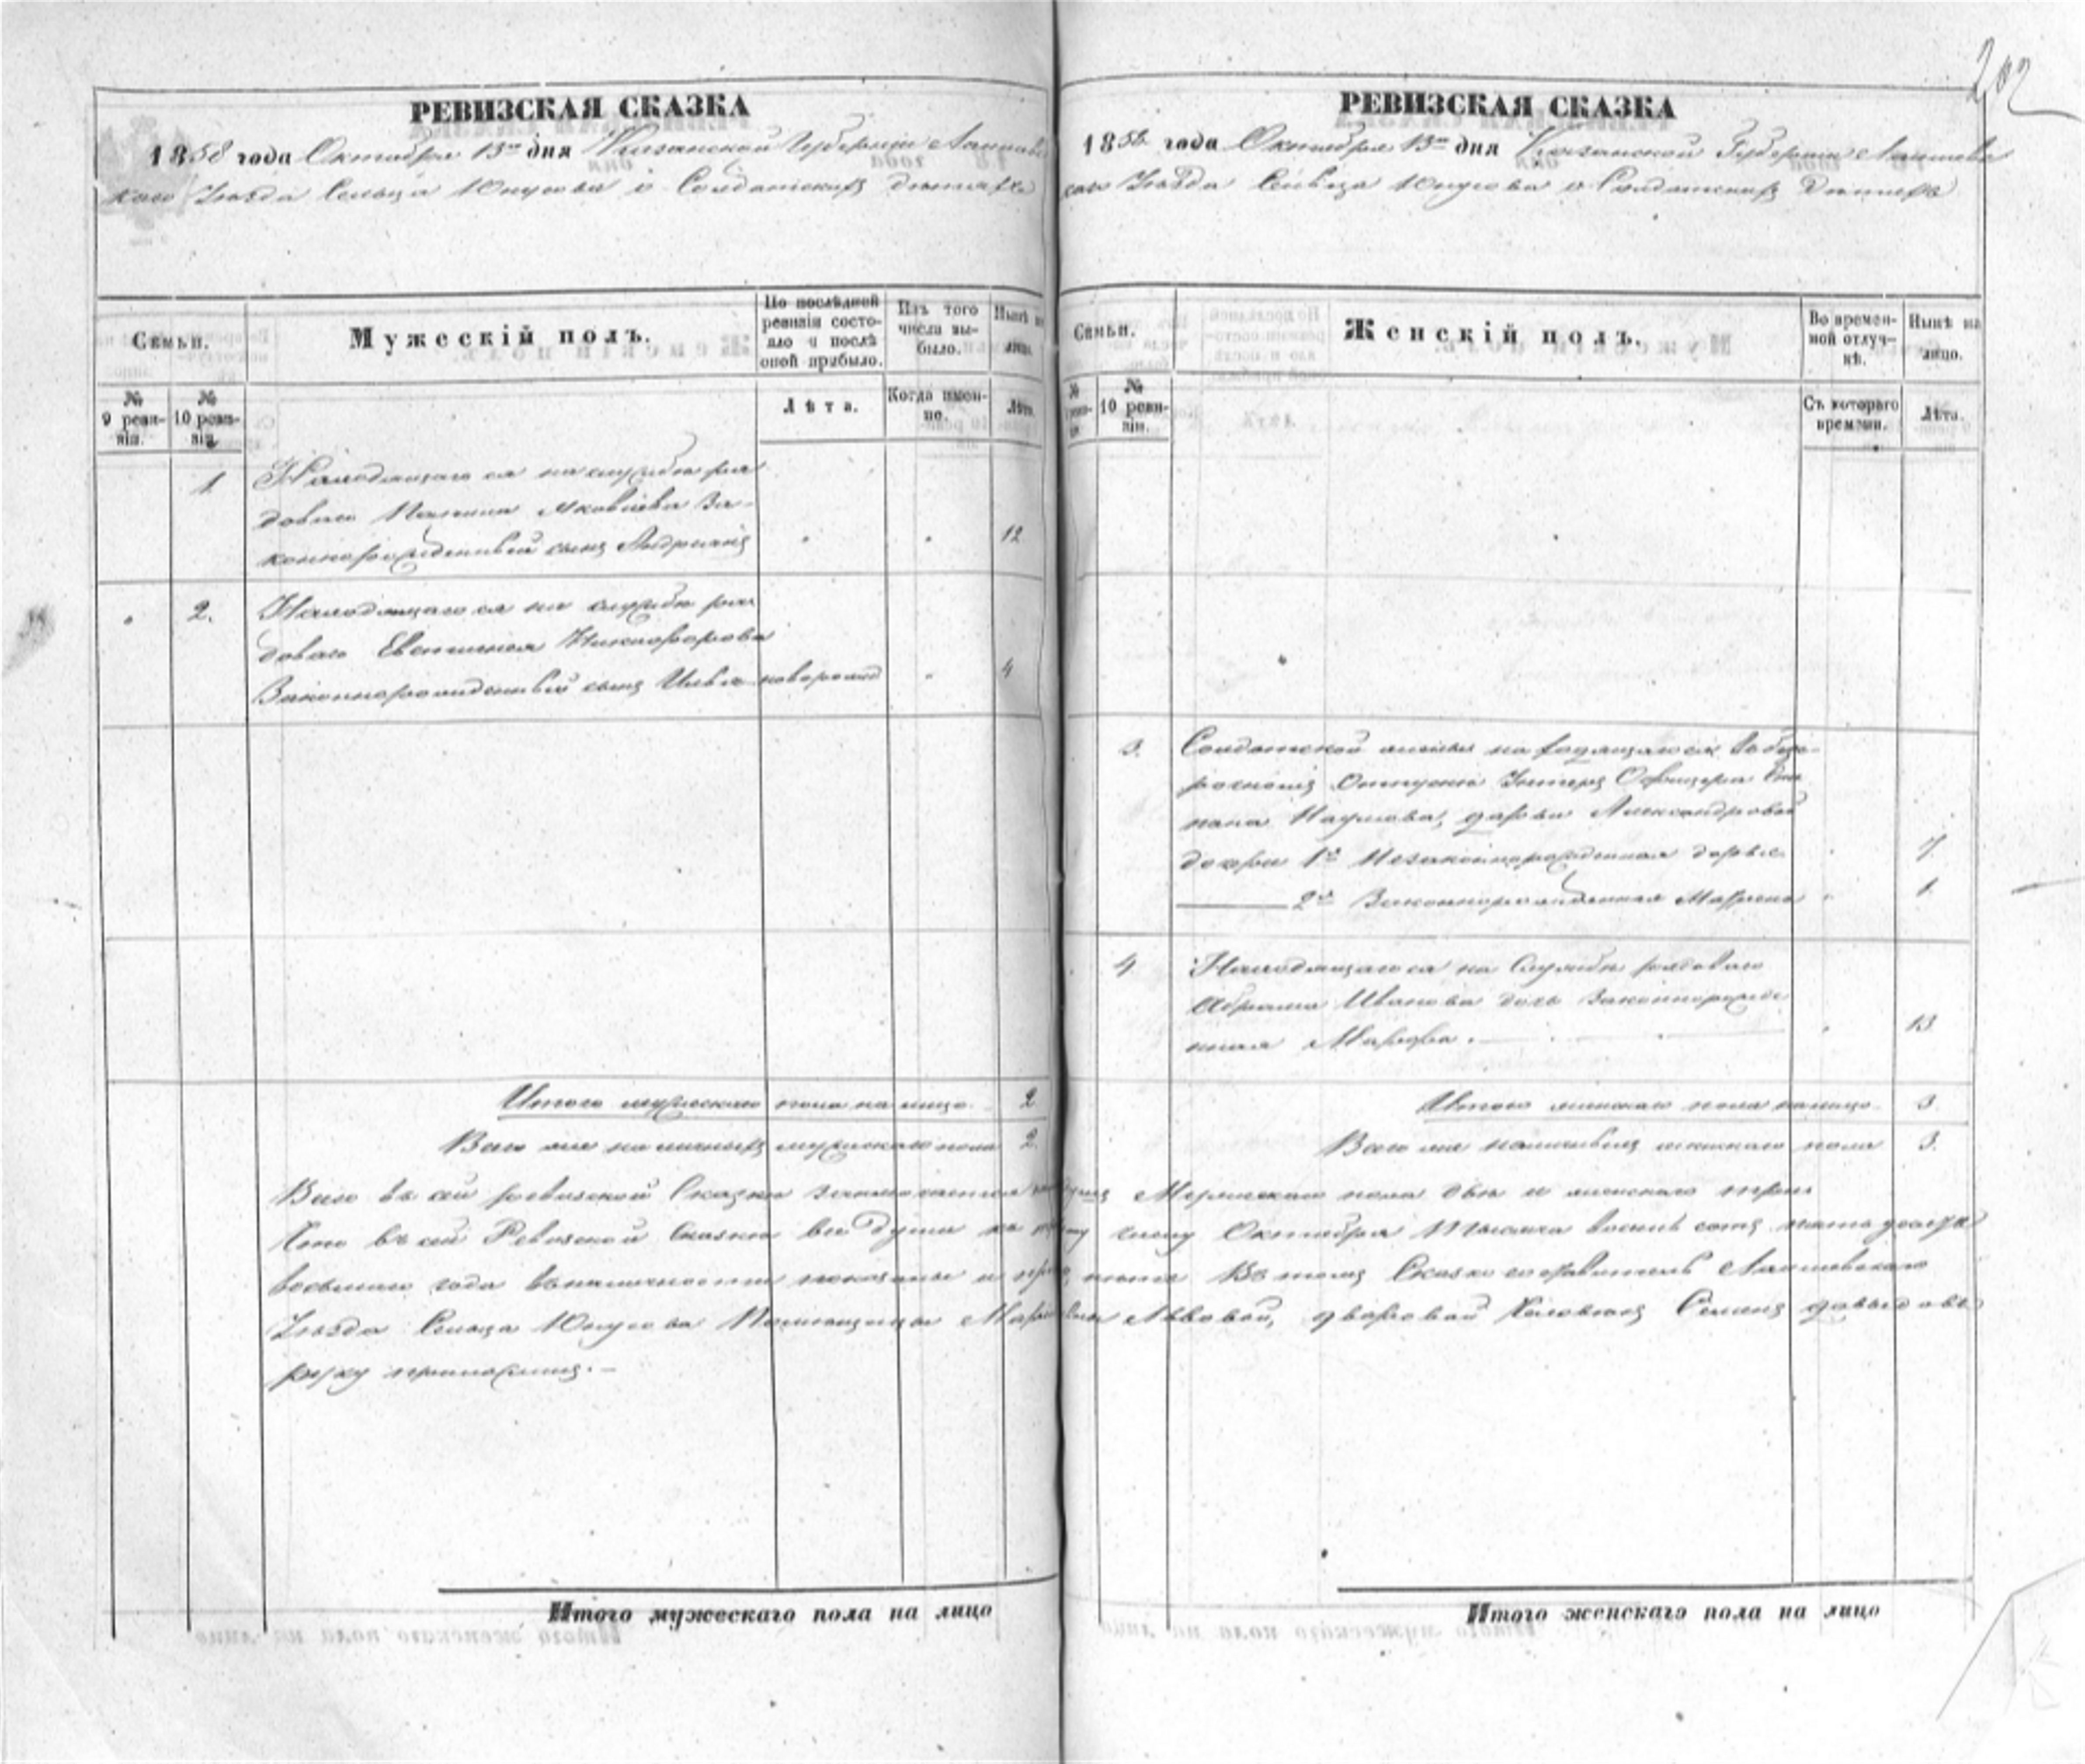 202
РЕВИЗСКАЯ СКАЗКА
1858 года Октября 13го дня Казанской Губерніи Лаишев
скаго Уѣзда Сельца Юнусова о Солдатскихъ дѣтяхъ
Семьи.
Мужескій полъ.
По послѣдней ревизіи состояло и послѣ оной прибыло.
Изъ того числа выбыло.
Нынѣ на лицо.
№ 9 ревизіи.
№ 10 ревизіи.
Лѣта.
Когда именно.
Лѣта.
1
Находящагося на службѣ ря
доваго Яковлева За-
коннорожденный сынъ Андриянъ
12
2.
Находящагося на службѣ ря
доваго Никифорова
Законнорожденный сынъ Илья новорожд
4
Итого мужескаго пола на лицо 2
Всего же наличныхъ мужескаго пола 2.
РЕВИЗСКАЯ СКАЗКА
1858 года Октября 13го дня Казанской Губерніи Лаишев
скаго Уѣзда Сельца Юнусова о Солдатскихъ дѣтяхъ
Семьи.
Женскій полъ.
Во временной отлучкѣ.
Нынѣ на лицо.
№ ревизіи.
№ 10 ревизіи.
Съ котораго времени.
Лѣта.
3.
Солдатской жены находящагося в безс-
рочномъ отпуску Унтеръ Офицера Сте
пана Наумова, Дарьи Александровой
дочери 1я Незаконнорожденная Дарья 7
2я Законнорожденная Матрена 1
4
Находящагося на Службѣ рядоваго
Абрама Иванова дочь Законнорожде
нная Марфа 13
Итого женскаго пола налицо 3.
Всего же наличныхъ женскаго пола 3.
Всего въ сей ревизской Сказкѣ заключается душъ Мужескаго пола двѣ и женскаго три
Что въ сей Ревизской Сказкѣ все души къ числу Октября Тысяча восемь сотъ пятьдесятъ
восьмаго года въ наличности показаны и Въ томъ Сказкосоставитель Лаишевскаго
Уѣзда Сельца Юнусова Помещицы Львовой, дворовой Человекъ Семенъ Давыдовъ
руку приложилъ.
Итого мужескаго пола на лицо
Итого женскаго пола на лицо